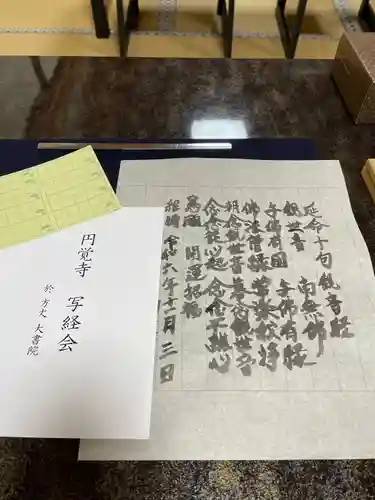 延命十句観音経
観世音 南無佛
与佛有因 与佛有縁
佛法僧縁 常楽我浄
朝念観世音 暮念観世音
念念従心起 念念不離心
為願 開運招福
令和六年十一月三日
円覚寺 写経会
於 方丈 大書院